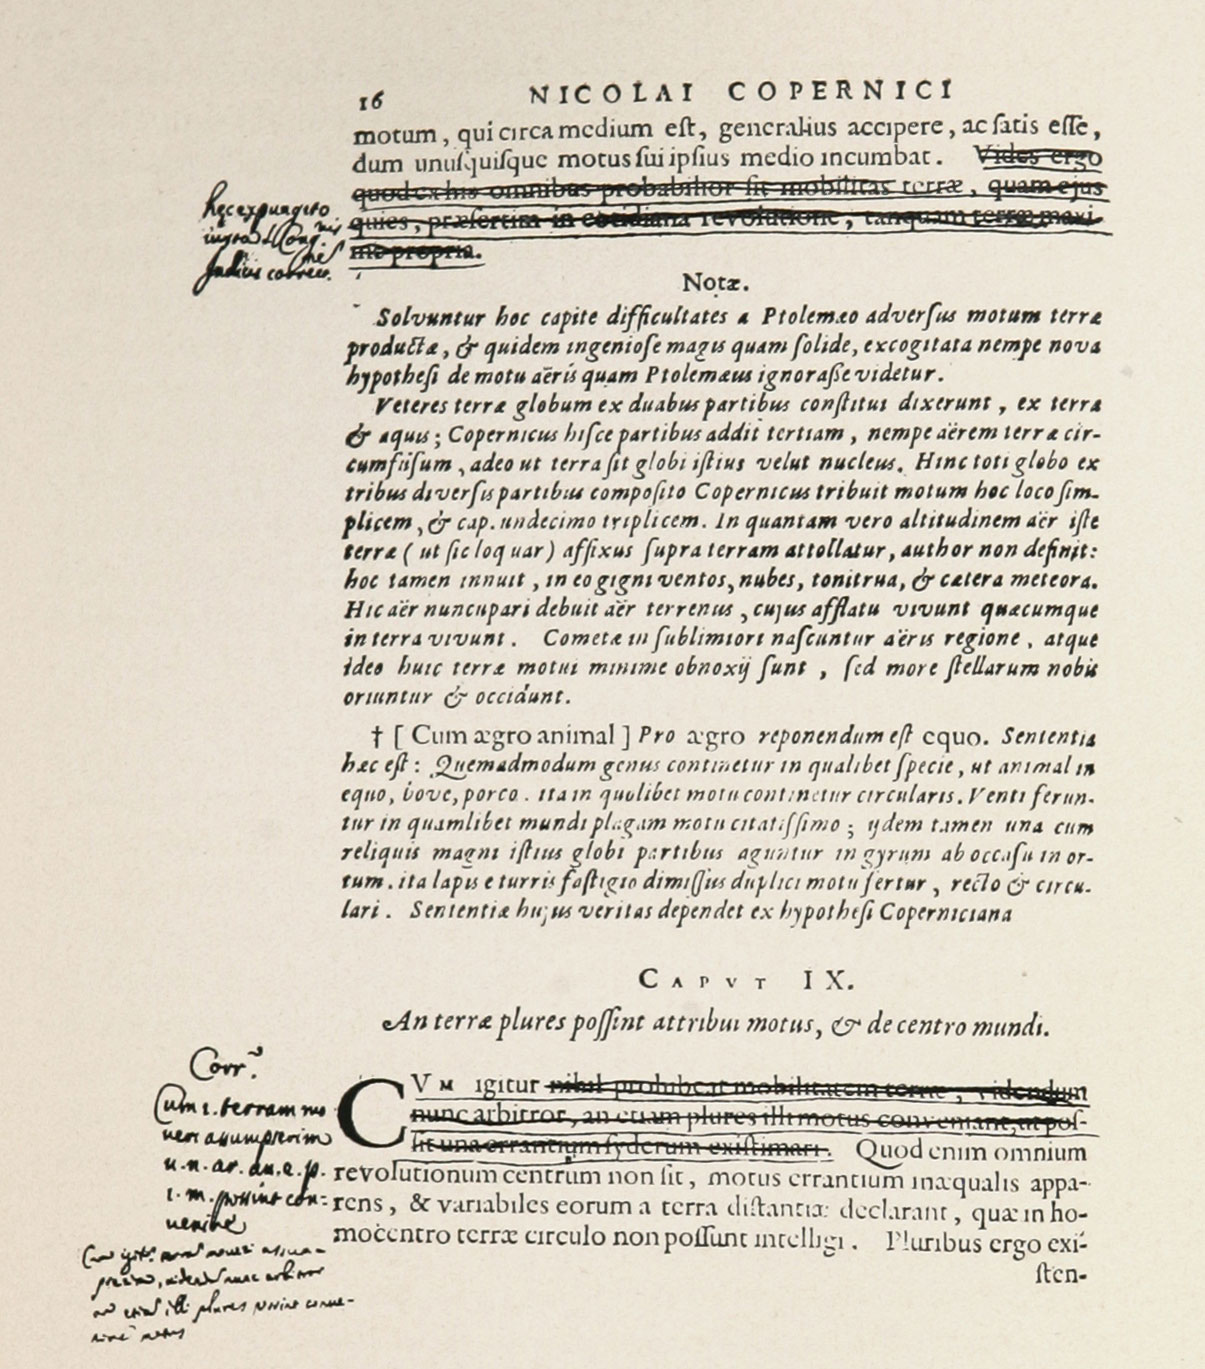 16 NICOLAI COPERNICI
motum, qui circa medium est, generalius accipere, ac satis esse,
dum unusquisque motus sui ipsius medio incumbat. Vides ergo
quod ex his omnibus probabilior sit mobilitas terræ, quam ejus
quies, præsertim in cotidiana revolutione, tanquam terræ maxi
me propria.
Hec expungito
iuxta
Judicis correc.
Notæ.
Solvuntur hoc capite difficultates a Ptolemæo adversus motum terræ
productæ, & quidem ingeniose magis quam solide, excogitata nempe nova
hypothesi de motu aëris quam Ptolemæus ignorasse videtur.
Veteres terræ globum ex duabus partibus constitui dixerunt, ex terra
& aquis; Copernicus hisce partibus addit tertiam, nempe aërem terræ cir-
cumfusum, adeo ut terra sit globi istius velut nucleus. Hinc toti globo ex
tribus diversis partibus composito Copernicus tribuit motum hoc loco sim-
plicem, & cap. undecimo triplicem. In quantam vero altitudinem aër iste
terræ (ut sic loquar) affixus supra terram attollatur, author non definit:
hoc tamen innuit, in eo gigni ventos, nubes, tonitrua, & cætera meteora.
Hic aër nuncupari debuit aër terrenus, cujus afflatu vivunt quæcumque
in terra vivunt. Cometæ in sublimiori nascuntur aëris regione, atque
ideo huic terræ motui minime obnoxij sunt, sed more stellarum nobis
oriuntur & occidunt.
† [Cum ægro animal] Pro ægro reponendum est equo. Sententia
hæc est: Quemadmodum genus continetur in qualibet specie, ut animal in
equo, bove, porco. ita in quolibet motu continetur circularis. Venti ferun-
tur in quamlibet mundi plagam motu citatissimo; ijdem tamen una cum
reliquis magni istius globi partibus aguntur in gyrum ab occasu in or-
tum. ita lapis e turris fastigio dimissus duplici motu fertur, recto & circu-
lari. Sententiæ hujus veritas dependet ex hypothesi Coperniciana
CAPVT IX.
An terræ plures possint attribui motus, & de centro mundi.
CVM igitur nihil prohibeat mobilitatem terræ, videndum
nunc arbitror, an etiam plures illi motus conveniant, ut pos-
sit una errantium syderum existimari. Quod enim omnium
revolutionum centrum non sit, motus errantium inæqualis appa-
rens, & variabiles eorum a terra distantiæ declarant, quæ in ho-
mocentro terræ circulo non possunt intelligi. Pluribus ergo exi-
sten-
Corr.
Cum i. terram mo
veri assumpserim
u. n. ar. an. e. p.
i. m. possint con-
venire